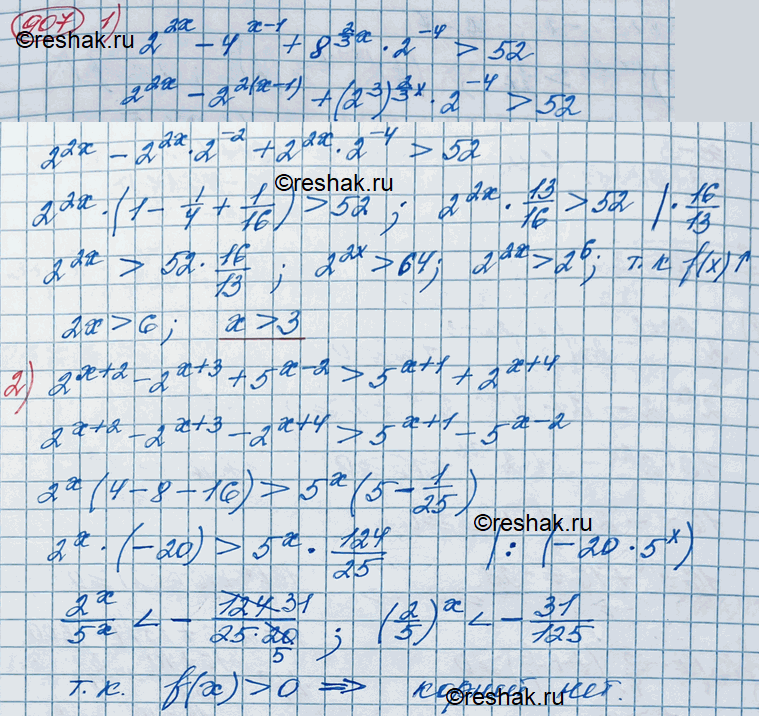 907 1) 2^{2x} - 4^{x-1} + 8^{\frac{2}{3}x} · 2^{-4} > 52
©reshak.ru
©reshak.ru
2^{2x} - 2^{2(x-1)} + (2^3)^{\frac{2}{3}x} · 2^{-4} > 52
2^{2x} - 2^{2x} · 2^{-2} + 2^{2x} · 2^{-4} > 52
©reshak.ru
2^{2x} · (1 - \frac{1}{4} + \frac{1}{16}) > 52 ; 2^{2x} · \frac{13}{16} > 52 | · \frac{16}{13}
2^{2x} > 52 · \frac{16}{13} ; 2^{2x} > 64; 2^{2x} > 2^6; т.к f(x)↑
2x > 6 ; x > 3
2) 2^{x+2} - 2^{x+3} + 5^{x-2} > 5^{x+1} + 2^{x+4}
2^{x+2} - 2^{x+3} - 2^{x+4} > 5^{x+1} - 5^{x-2}
2^x (4 - 8 - 16) > 5^x (5 - \frac{1}{25})
©reshak.ru
2^x · (-20) > 5^x · \frac{124}{25} | : (-20 · 5^x)
\frac{2^x}{5^x} < - \frac{124 31}{25 · 20 5} ; (\frac{2}{5})^x < - \frac{31}{125}
т.к. f(x) > 0 ⇒ корней нет.
©reshak.ru